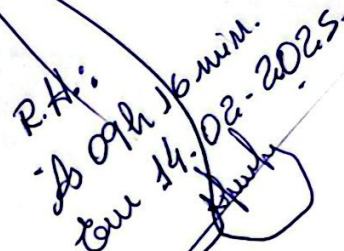 R.H.:
Às 09h 16 min.
Em 14-02-2025.